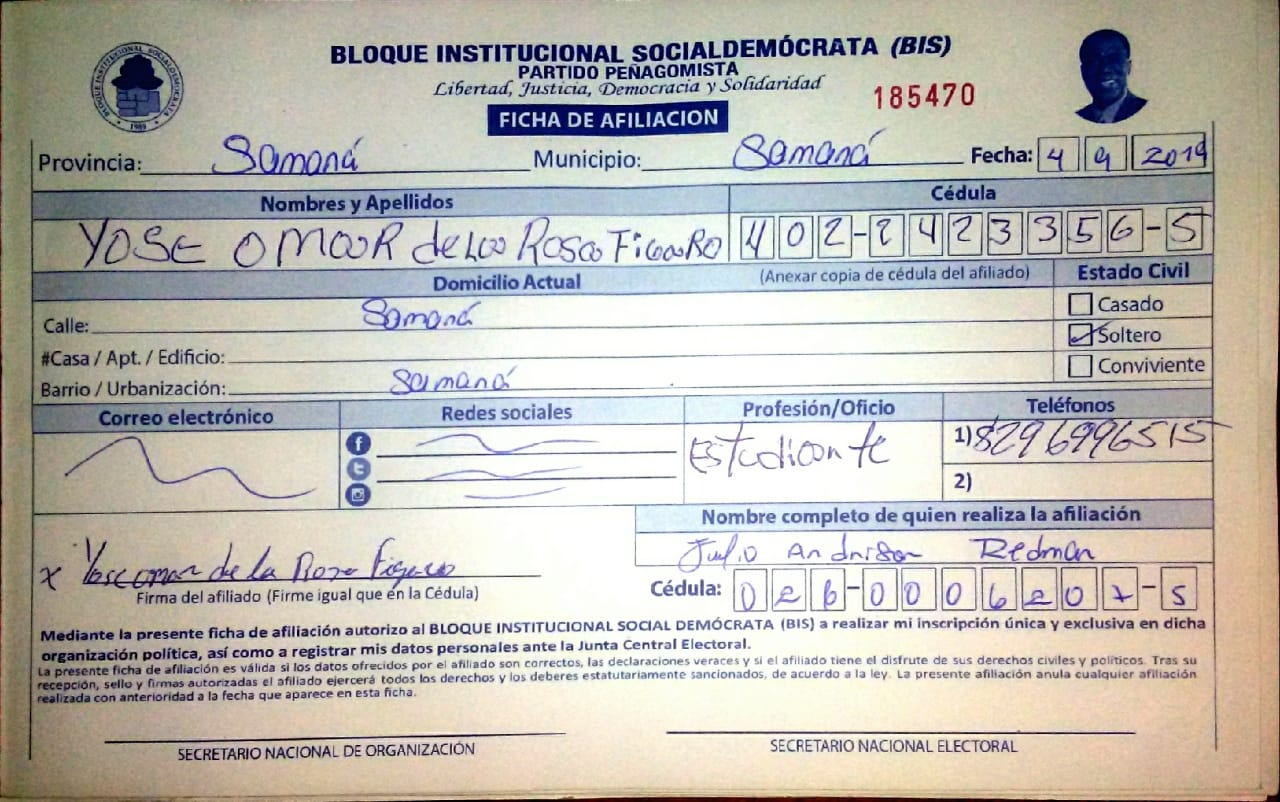 BLOQUE INSTITUCIONAL SOCIALDEMÓCRATA (BIS)
PARTIDO PEÑAGOMISTA
Libertad, Justicia, Democracia y Solidaridad
185470
FICHA DE AFILIACION
BLOQUE INSTITUCIONAL SOCIALDEMOCRATA
1989
Provincia: Samaná Municipio: Samaná Fecha: 4 9 2019
Nombres y Apellidos Cédula
YOSE OMAR de La Rosa FigaRO 402-2423356-5
Domicilio Actual (Anexar copia de cédula del afiliado) Estado Civil
Calle: Samaná
Casado
Soltero
#Casa / Apt. / Edificio:
Conviviente
Barrio / Urbanización: Samaná
Correo electrónico Redes sociales Profesión/Oficio Teléfonos
Estudiante 1) 8296996515
2)
Nombre completo de quien realiza la afiliación
Julio Andrison Redman
x Yose omar de la Rosa Figaro
Firma del afiliado (Firme igual que en la Cédula)
Cédula: 026-0006207-5
Mediante la presente ficha de afiliación autorizo al BLOQUE INSTITUCIONAL SOCIAL DEMÓCRATA (BIS) a realizar mi inscripción única y exclusiva en dicha
organización política, así como a registrar mis datos personales ante la Junta Central Electoral.
La presente ficha de afiliación es válida si los datos ofrecidos por el afiliado son correctos, las declaraciones veraces y si el afiliado tiene el disfrute de sus derechos civiles y políticos. Tras su
recepción, sello y firmas autorizadas el afiliado ejercerá todos los derechos y los deberes estatutariamente sancionados, de acuerdo a la ley. La presente afiliación anula cualquier afiliación
realizada con anterioridad a la fecha que aparece en esta ficha.
SECRETARIO NACIONAL DE ORGANIZACIÓN SECRETARIO NACIONAL ELECTORAL